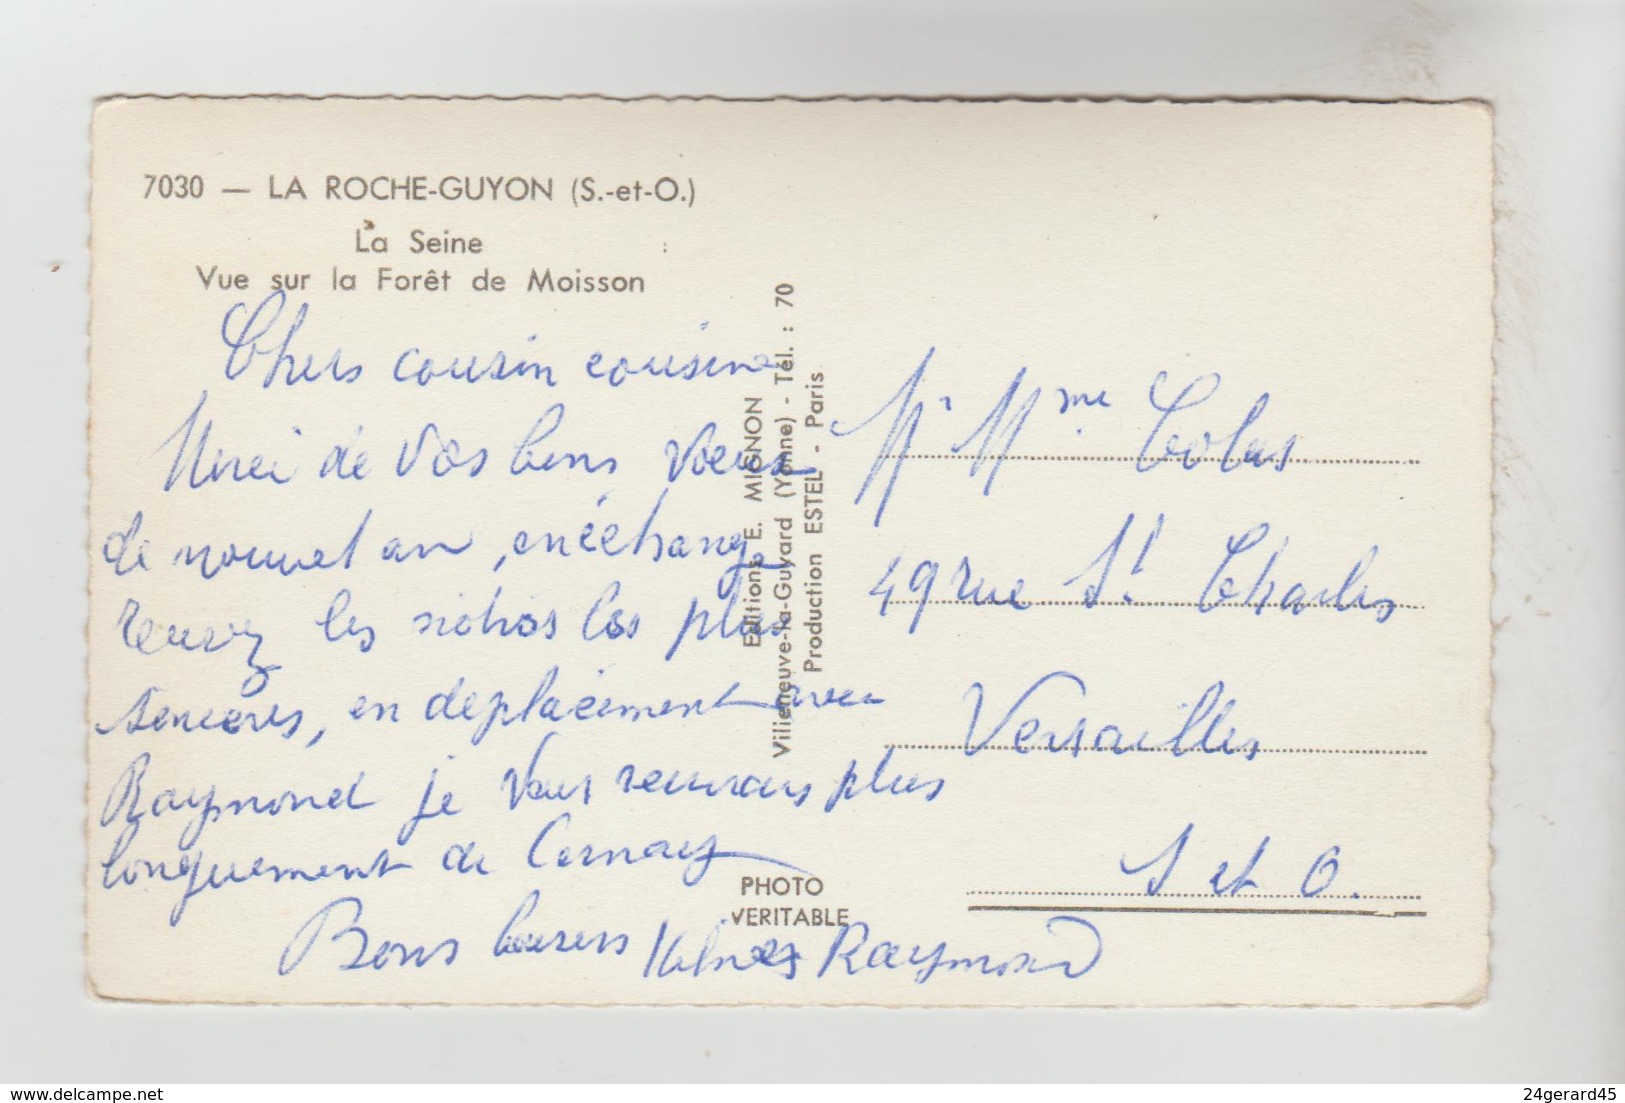 7030 — LA ROCHE-GUYON (S.-et-O.)
La Seine
Vue sur la Forêt de Moisson
Chers cousin cousine
Merci de vos bons voeux
de nouvel an, en échange
recevez les nôtres les plus
sincères, en déplacement avec
Raymond je vous reverrais plus
longuement de Cernay
Bons baisers Raymond
Editions E. MIGNON
Villeneuve-la-Guyard (Yonne) - Tél. : 70
Production ESTEL - Paris
PHOTO
VERITABLE
Mr Mme
49 rue St Charles
Versailles
S et O.
delcampe.net
24gerard45